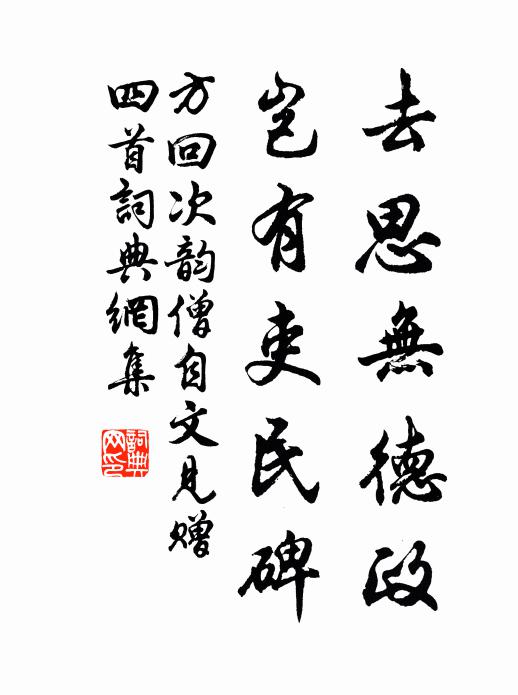 去思無德政
豈有吏民碑
方回次韵僧自文見贈
四首詞典網集
詞典
网印